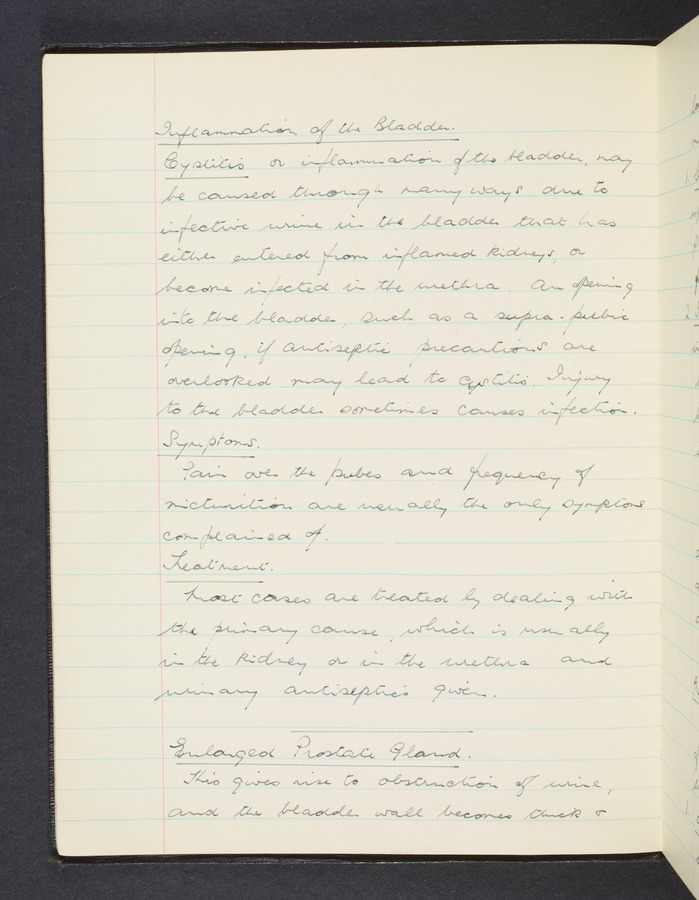 Inflammation of the Bladder.
Cystitis or inflammation of the bladder, may
be caused through many ways due to
infective urine in the bladder that has
either entered from inflamed kidneys, or
become infected in the urethra. An opening
into the bladder, such as a supra-pubic
opening, if antiseptic precautions are
overlooked may lead to cystitis. Injury
to the bladder sometimes causes infection.
Symptoms.
Pain over the pubes and frequency of
micturition are usually the only symptoms
complained of.
Treatment.
Most cases are treated by dealing with
the primary cause, which is usually
in the kidney or in the urethra and
urinary antiseptics given.
Enlarged Prostate Gland.
This gives rise to obstruction of urine,
and the bladder wall becomes thick &